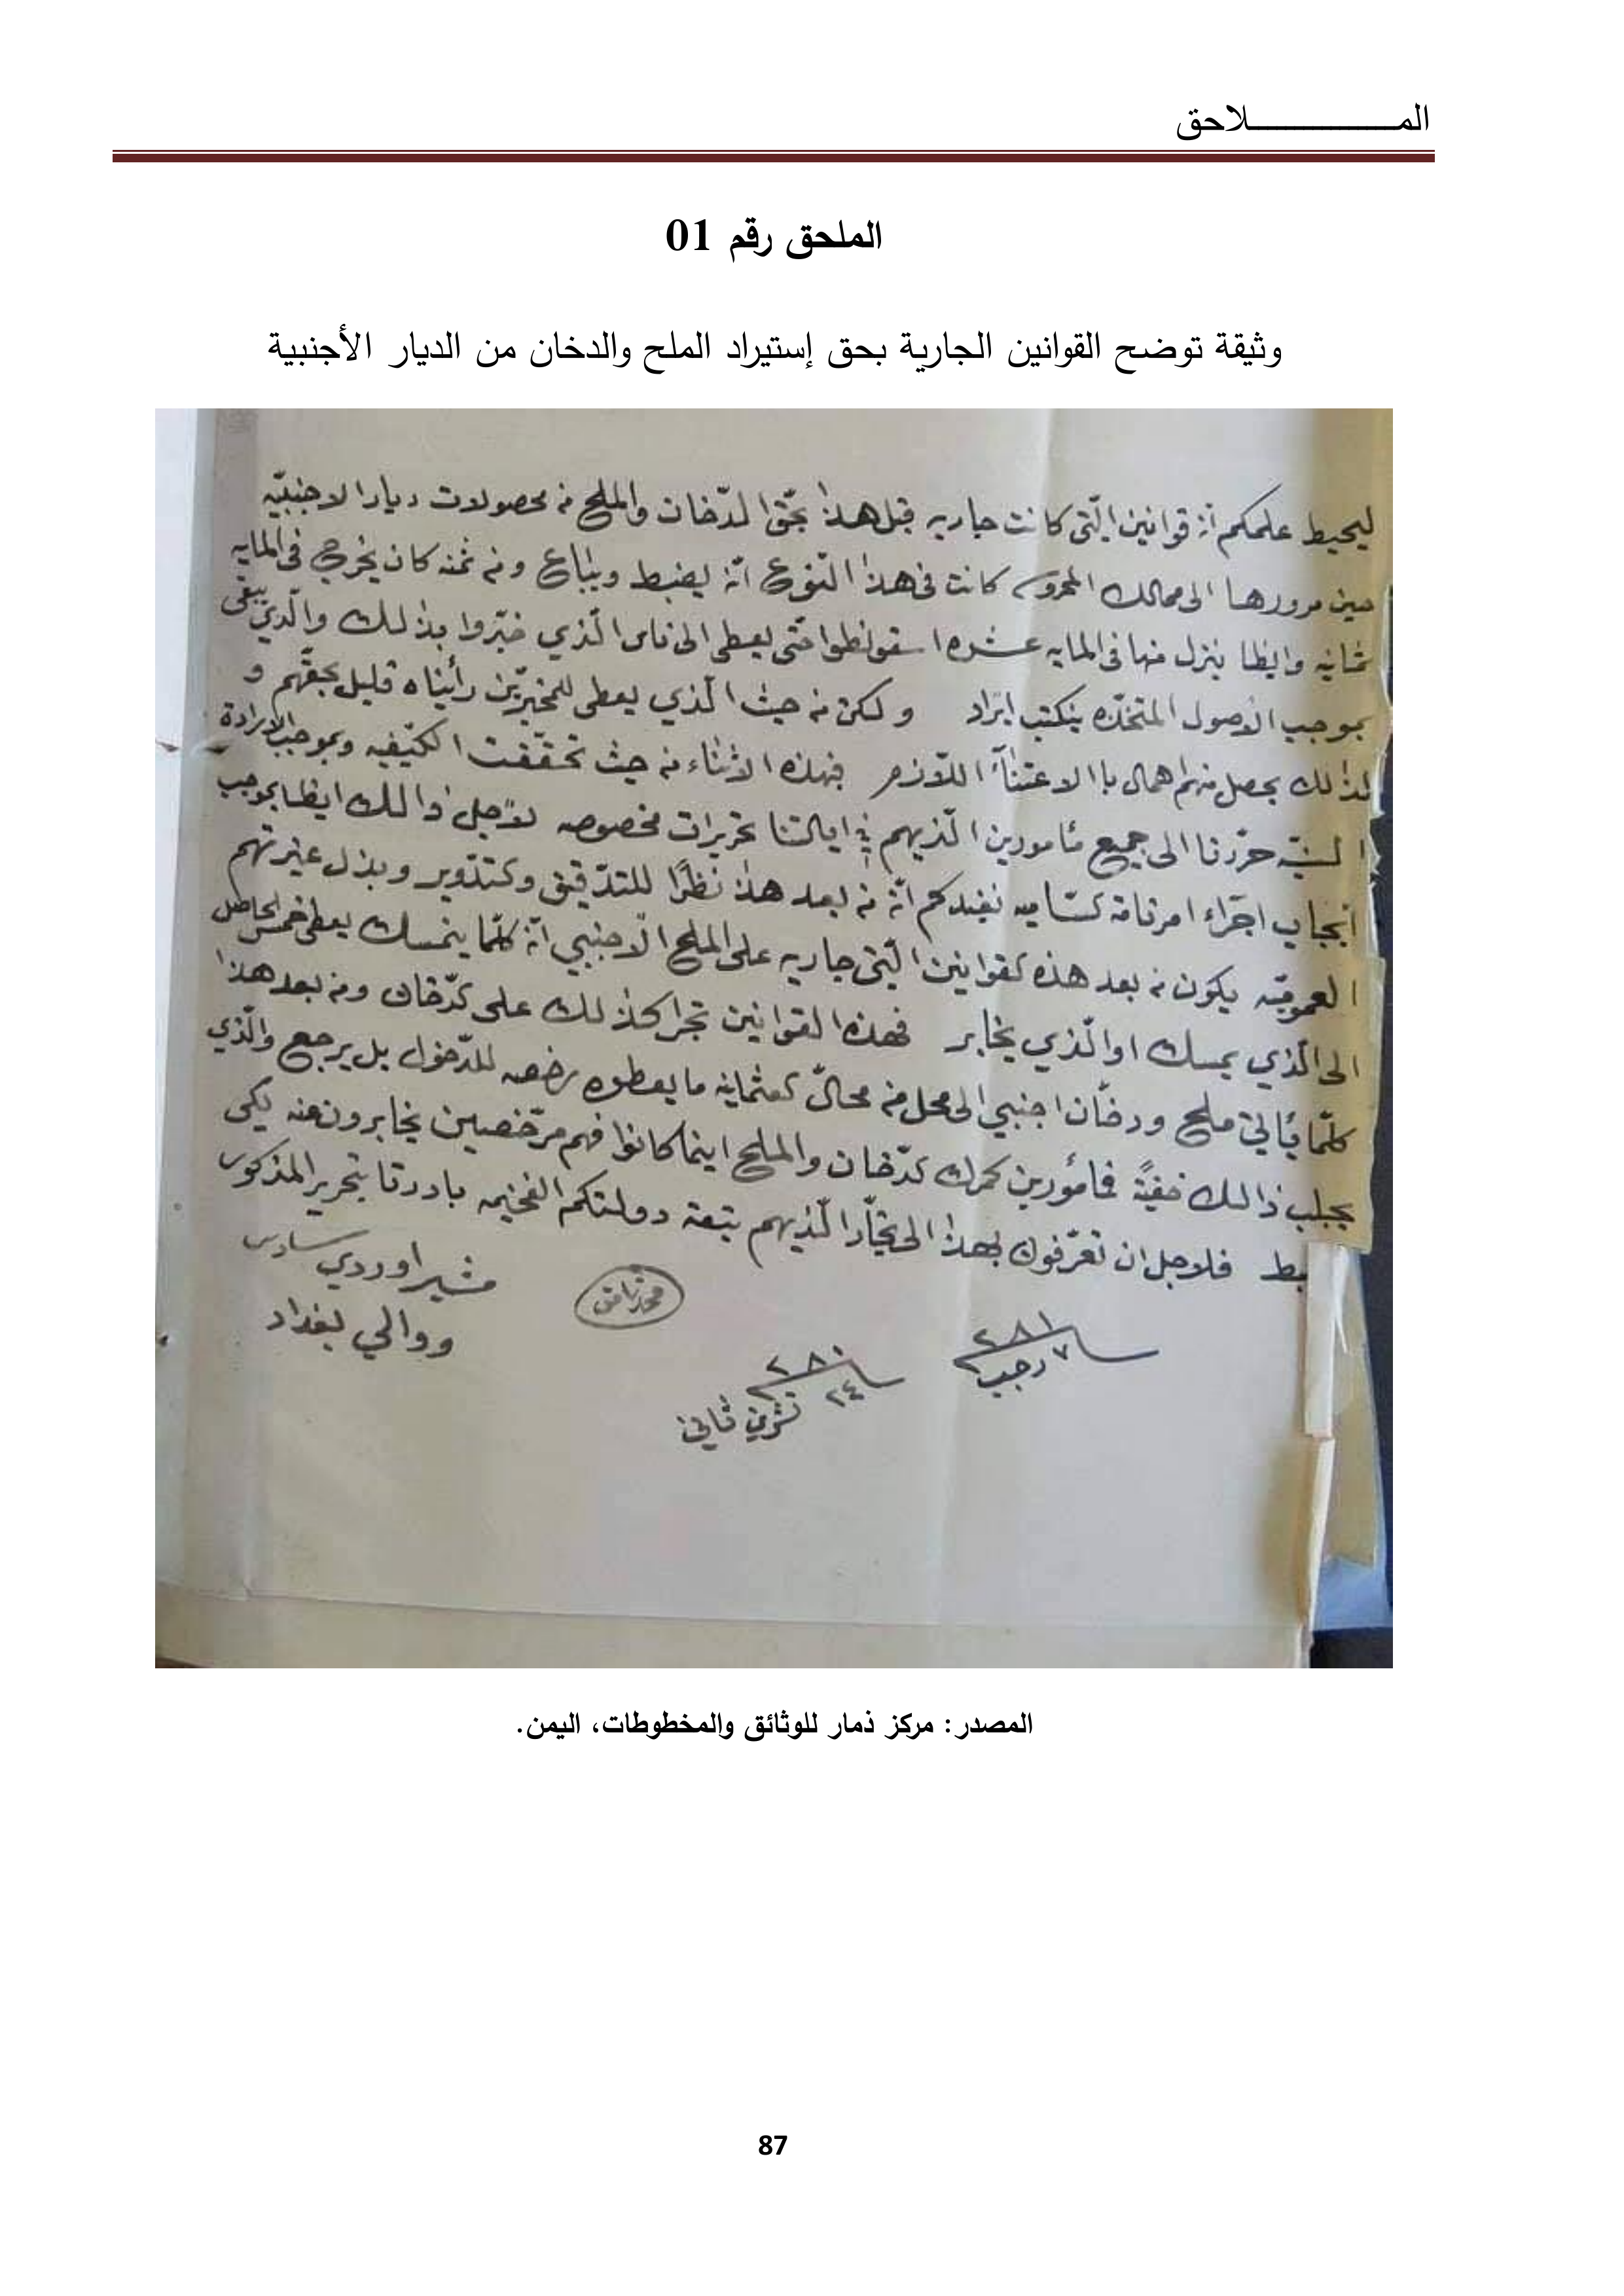 المـــــــــــــــــلاحق
الملحق رقم 01
وثيقة توضح القوانين الجارية بحق إستيراد الملح والدخان من الديار الأجنبية
ليحيط علمكم انّ قوانين الّتي كانت جاريه قبل هذا بحّق الدّخان والملح من محصولات ديار الاجنبيّه
حين مرورها الى ممالك المحروسه كانت في هذا النّوع انّه يضبط ويباع ومن ثمنه كان يخرج في المايه
ثمانيه وايظا ينزل منها في المايه عشره حتّى يعطى الى ناس الّذي خبّروا بذلك والّذي يبقى
بموجب الاصول المتخذه ينكتب ايراد ولكن من حيث الّذي يعطى للمخبرين رأيناه قليل بحقّهم و
لذلك يحصل منهم اهمال باالاعتنآء اللّازم فهذه الاثناء من حيث تحقّقت الكيّفيه وبموجب الارادة
السنيّه حرّرنا الى جميع مأمورين الّذيهم في ايالتنا تحريرات مخصوصه لاجل ذالك ايظا بموجب
ايجاب اجراء امرنامة نفيدكم انّه من بعد هذا نظرًا للتدّقيق وبذل غيرتهم
العموميّه يكون من بعد هذه لقوانين الّتي جاريه على الملح الاجنبي انّه كلّما ينمسك يعطى خمس الحاصل
الى الّذي يمسك او الّذي يخابر فهذه القوانين تجرا كذلك على لدّخان ومن بعد هذا
كلّما يأتي ملح ودخّان اجنبي الى محل من محالّ لعثمانيه ما يعطوه رخصه للدّخول بل يرجع والّذي
يجلب ذالك خفيةً فمأمورين كمرك لدّخان والملح اينما كانوا فهم مرّخصين يخابرون عنه لكى
بط فلاجل ان تعرّفون بهذا الى تجّار الّذيهم بتبعة دولتكم الفخيمه بادرنا بتحرير المذكور
مشير اوردي سادس
ووالي بغداد
محمد نامق
٧ رجب ٢٨١
٢٤ تشرين ثاني ٢٨٠
المصدر: مركز ذمار للوثائق والمخطوطات، اليمن.
87